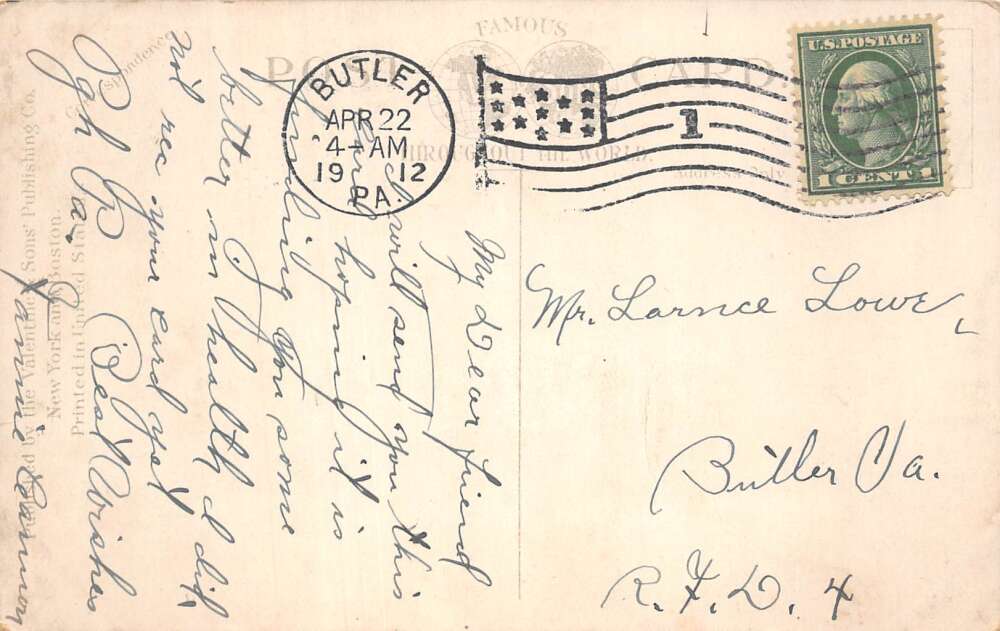 FAMOUS
POST CARD
THROUGHOUT THE WORLD.
BUTLER
APR 22
4-AM
19 12
PA.
1
U.S. POSTAGE
1 CENT 1
Address only
Mr. Larnce Lowe,
Butler Pa.
R. F. D. 4
My Dear friend
I will send you this
card hoping it is
finding you some
better in health I did
not rec your card yet
Pgh Pa. Best Wishes
Fannie
by the Valentine & Sons' Publishing Co.
New York and Boston.
Printed in United States